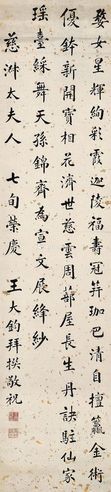 婺女星輝絢彩霞迦陵福壽冠笄珈巴清自擅籯金術
優鉢新開寶相花濟世慈雲周蔀屋長生丹訣駐仙家
瑤臺綵舞天孫錦齊為宣文展絳紗
慈淋太夫人 七旬榮慶 王大鈞拜撰敬祝